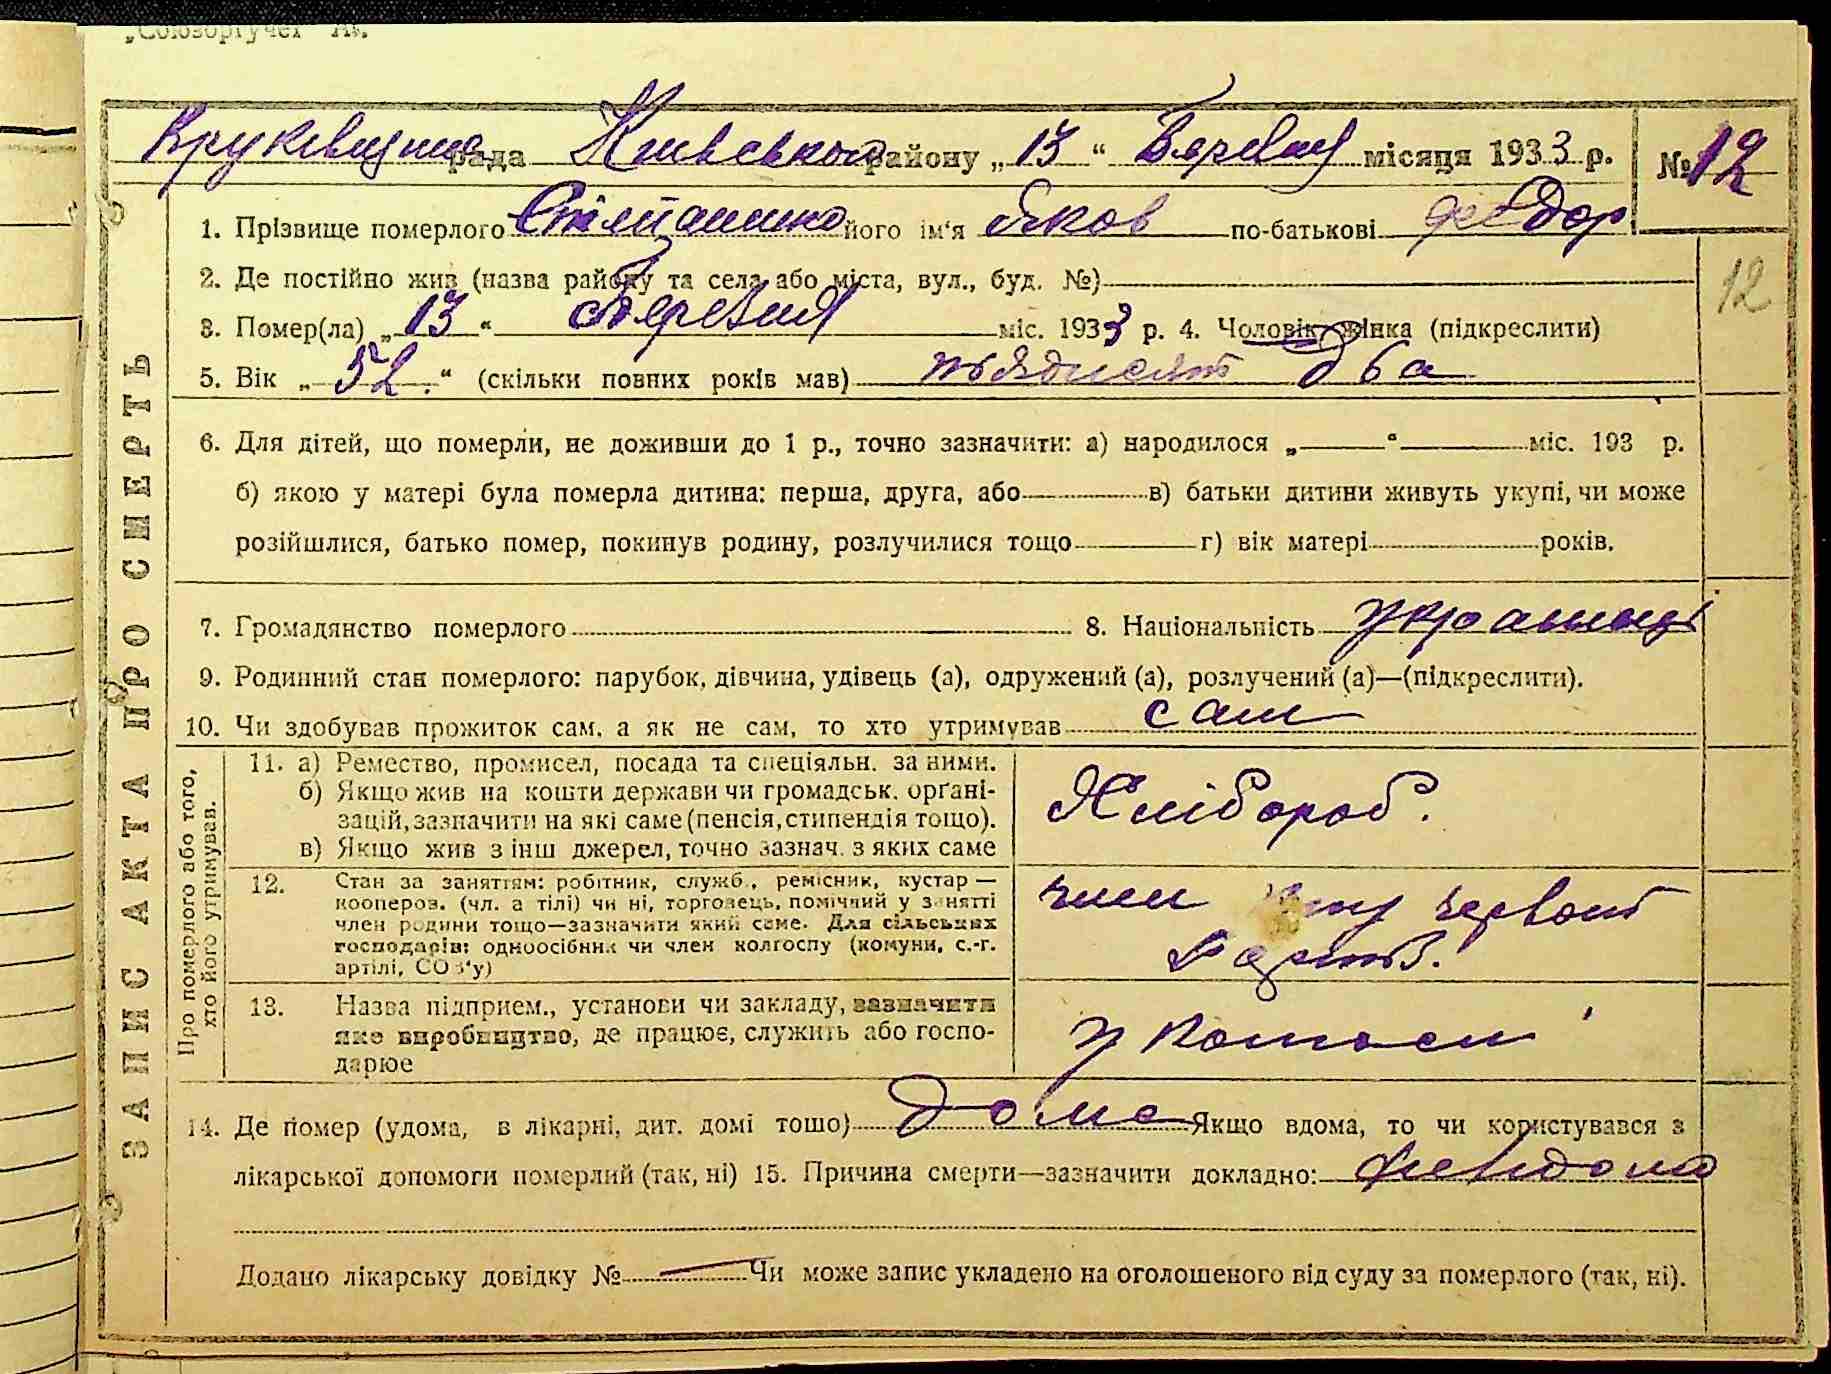 „Союзоргучет"
рада Київської району „13" Березня місяця 1933 р. №12
1. Прізвище померлого Степаненко його ім'я Яков по-батькові Федор
12
2. Де постійно жив (назва району та села або міста, вул., буд. №)
3. Помер(ла) „13" березня міс. 1933 р. 4. Чоловік, жінка (підкреслити)
5. Вік „52." (скільки повних років мав) пьядисят два
6. Для дітей, що померли, не доживши до 1 р., точно зазначити: а) народилося „ " міс. 193 р.
б) якою у матері була померла дитина: перша, друга, або в) батьки дитини живуть укупі, чи може
розійшлися, батько помер, покинув родину, розлучилися тощо г) вік матері років.
7. Громадянство померлого 8. Національність украинец
9. Родинний стан померлого: парубок, дівчина, удівець (а), одружений (а), розлучений (а)—(підкреслити).
10. Чи здобував прожиток сам, а як не сам, то хто утримував сам
ЗАПИС АКТА ПРО СМЕРТЬ
Про померлого або того,
хто його утримував.
11. а) Ремество, промисел, посада та спеціяльн. за ними.
б) Якщо жив на кошти держави чи громадськ. орґані-
зацій, зазначити на які саме (пенсія, стипендія тощо).
в) Якщо жив з інш джерел, точно зазнач. з яких саме
Хлібороб.
12. Стан за заняттям: робітник, служб., ремісник, кустар —
коопероз. (чл. а тілі) чи ні, торговець, помічний у занятті
член родини тощо—зазначити який саме. Для сільських
господарів: одноосібник чи член колгоспу (комуни, с.-г.
артілі, СОЗ'у)
член
13. Назва підприєм., установи чи закладу, зазначити
яке виробництво, де працює, служить або госпо-
дарює
у
14. Де помер (удома, в лікарні, дит. домі тошо) дома Якщо вдома, то чи користувався з
лікарської допомоги померлий (так, ні) 15. Причина смерти—зазначити докладно:
Додано лікарську довідку № — Чи може запис укладено на оголошеного від суду за померлого (так, ні).